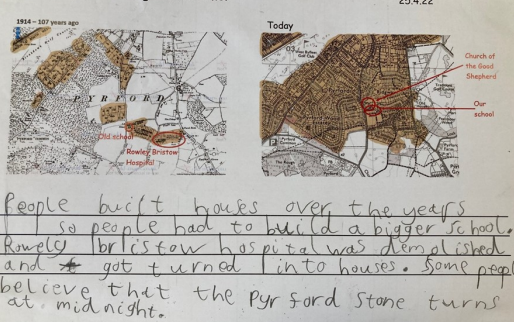 25.4.22
1914 – 107 years ago
Today
PYRFORD
Old school
Rowley Bristow
Hospital
Church of
the Good
Shepherd
Our
school
People built houses over the years
so people had to build a bigger school.
Rowely bristow hospital was demolished
and got turned into houses. Some peopl
believe that the Pyrford Stone turns
at midnight.